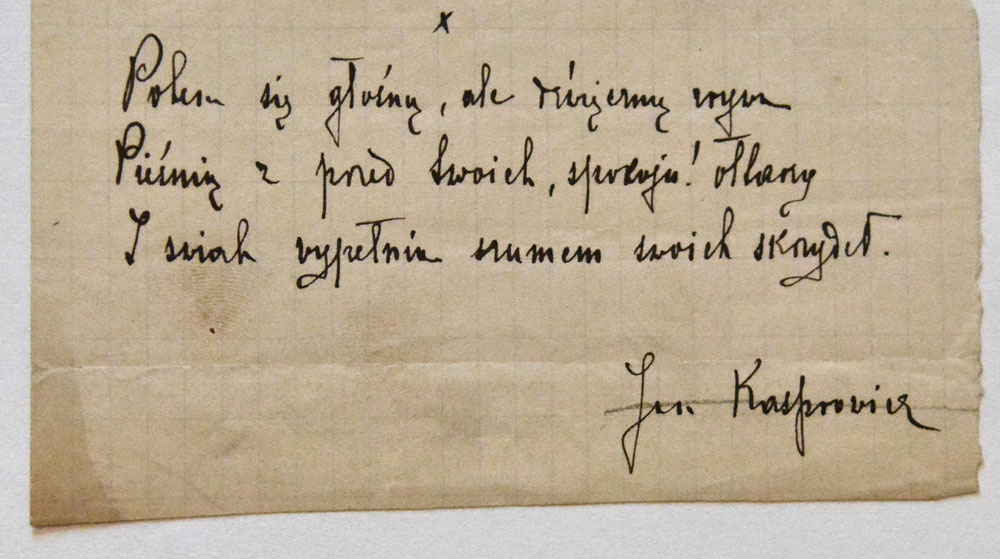 x
Potem się głośną, ale zrywa
Pieśnią z przed Twoich, spokoju! ołtarzy
I świat wypełnia szumem swoich skrzydeł.
Jan Kasprowicz